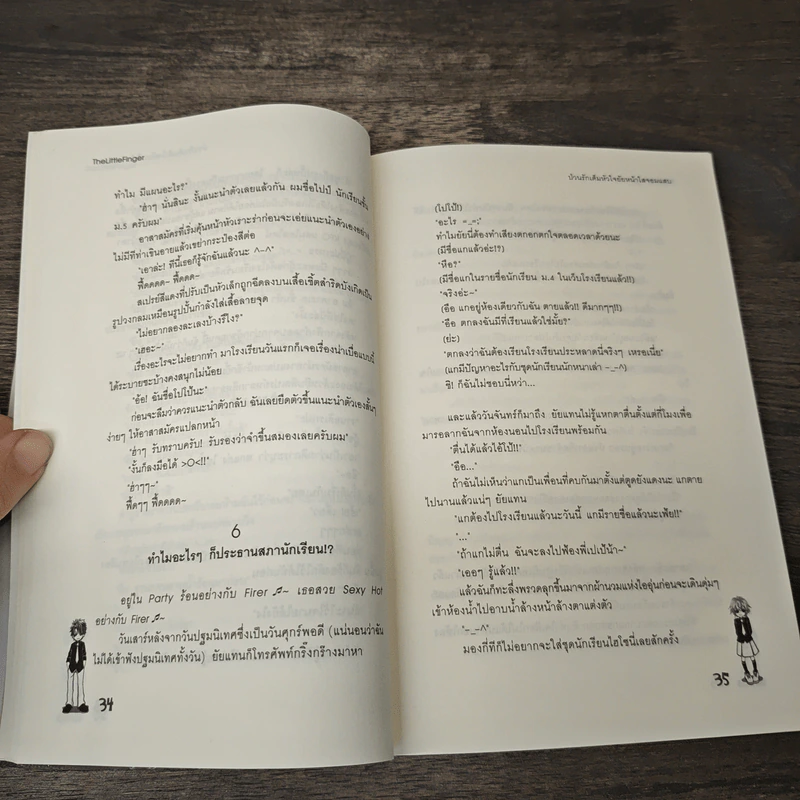 TheLittleFinger
ทำไม มีแผนอะไร?"
"ฮ่าๆ นั่นสินะ งั้นแนะนำตัวเลยแล้วกัน ผมชื่อไปป์ นักเรียนชั้น
ม.5 ครับผม"
อาสาสมัครที่เริ่มคุ้นหน้าหัวเราะร่าก่อนจะเอ่ยแนะนำตัวเองอย่าง
ไม่มีทีท่าเขินอายแล้วเขย่ากระป๋องสีต่อ
"เอาล่ะ! ทีนี้เธอก็รู้จักฉันแล้วนะ ^-^"
ฟี้ดดดด~ ฟี้ดดด~
สเปรย์สีแดงที่ปรับเป็นหัวเล็กถูกฉีดลงบนเสื้อเชิ้ตสำริดบังเกิดเป็น
รูปวงกลมเหมือนรูปปั้นกำลังใส่เสื้อลายจุด
"ไม่อยากลองละเลงบ้างรึไง?"
"เฮอะ~"
เรื่องอะไรจะไม่อยากทำ มาโรงเรียนวันแรกก็เจอเรื่องน่าเบื่อแบบนี้
ได้ระบายซะบ้างคงสนุกไม่น้อย
"อ้อ! ฉันชื่อโปโป้นะ"
ก่อนจะลืมว่าควรแนะนำตัวกลับ ฉันเลยยืดตัวขึ้นแนะนำตัวเองสั้นๆ
ง่ายๆ ให้อาสาสมัครแปลกหน้า
"ฮ่าๆ รับทราบครับ! รับรองว่าจำขึ้นสมองเลยครับผม"
"งั้นก็ลงมือได้ >O<!!"
"ฮ่าๆๆ~"
ฟี้ดๆๆ ฟี้ดดดด~
6
ทำไมอะไรๆ ก็ประธานสภานักเรียน!?
อยู่ใน Party ร้อนอย่างกับ Firer ♬~ เธอสวย Sexy Hot
อย่างกับ Firer ♬~
วันเสาร์หลังจากวันปฐมนิเทศซึ่งเป็นวันศุกร์พอดี (แน่นอนว่าฉัน
ไม่ได้เข้าฟังปฐมนิเทศทั้งวัน) ยัยแทนก็โทรศัพท์กริ๊งกร๊างมาหา
34
ป่วนรักเต็มหัวใจยัยหน้าใสจอมแสบ
(โปโป้!)
"อะไร =_=;"
ทำไมยัยนี่ต้องทำเสียงตกอกตกใจตลอดเวลาด้วยนะ
(มีชื่อแกแล้วอ่ะ!?)
"หือ?"
(มีชื่อแกในรายชื่อนักเรียน ม.4 ในเว็บโรงเรียนแล้ว!!)
"จริงอ่ะ~"
(อือ แกอยู่ห้องเดียวกับฉัน ตายแล้ว!! ดีมากๆๆ!!)
"อือ ตกลงฉันมีที่เรียนแล้วใช่มั้ย?"
(ย่ะ)
"ตกลงว่าฉันต้องเรียนโรงเรียนประหลาดนี่จริงๆ เหรอเนี่ย"
(แกมีปัญหาอะไรกับชุดนักเรียนนักหนาเล่า -_-^)
ชิ! ก็ฉันไม่ชอบนี่หว่า...
และแล้ววันจันทร์ก็มาถึง ยัยแทนไม่รู้แหกตาตื่นตั้งแต่กี่โมงเพื่อ
มารอลากฉันจากห้องนอนไปโรงเรียนพร้อมกัน
"ตื่นได้แล้วไอ้โป้!!"
"อือ..."
ถ้าฉันไม่เห็นว่าแกเป็นเพื่อนที่คบกันมาตั้งแต่ตูดยังแดงนะ แกตาย
ไปนานแล้วแน่ๆ ยัยแทน
"แกต้องไปโรงเรียนแล้วนะวันนี้ แกมีรายชื่อแล้วนะเฟ้ย!!"
"..."
"ถ้าแกไม่ตื่น ฉันจะลงไปฟ้องพี่เปเป้น้า~"
"เออๆ รู้แล้ว!!"
แล้วฉันก็ทะลึ่งพรวดลุกขึ้นมาจากผ้านวมแห่งไออุ่นก่อนจะเดินตุ่มๆ
เข้าห้องน้ำไปอาบน้ำล้างหน้าล้างตาแต่งตัว
"-_-^"
มองกี่ทีก็ไม่อยากจะใส่ชุดนักเรียนไฮโซนี่เลยสักครั้ง
35